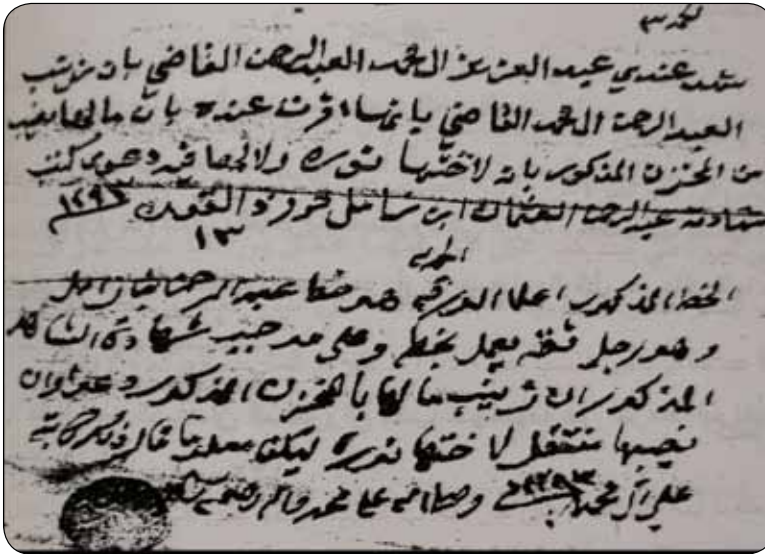 الحمد لله
شهد عندي عبد العزيز ال محمد العبد الرحمن القاضي بان زينب
العبد الرحمن ال محمد القاضي بانها اقرت عنده بان مالها نصيب
من المخزن المذكور بانه لاختها نوره ولا لها فيه دعوى كتب
شهادته عبد الرحمن العثمان ابن شامل حرر ذ القعدة ١٢٩٢
١٣
الحمد لله
الخط المذكور اعلا الورقه هو خط عبد الرحمن
وهو رجل ثقه يعمل بخطه وعلى موجب شهادة الشاهد
المذكور ان زينب مالها بالمخزن المذكور دعوى وان
نصيبها منتقل لاختها نوره ليكن معلوما قال ذلك وكتبه
علي آل محمد ١٢٩٣ وصلى الله على محمد واله وصحبه وسلم